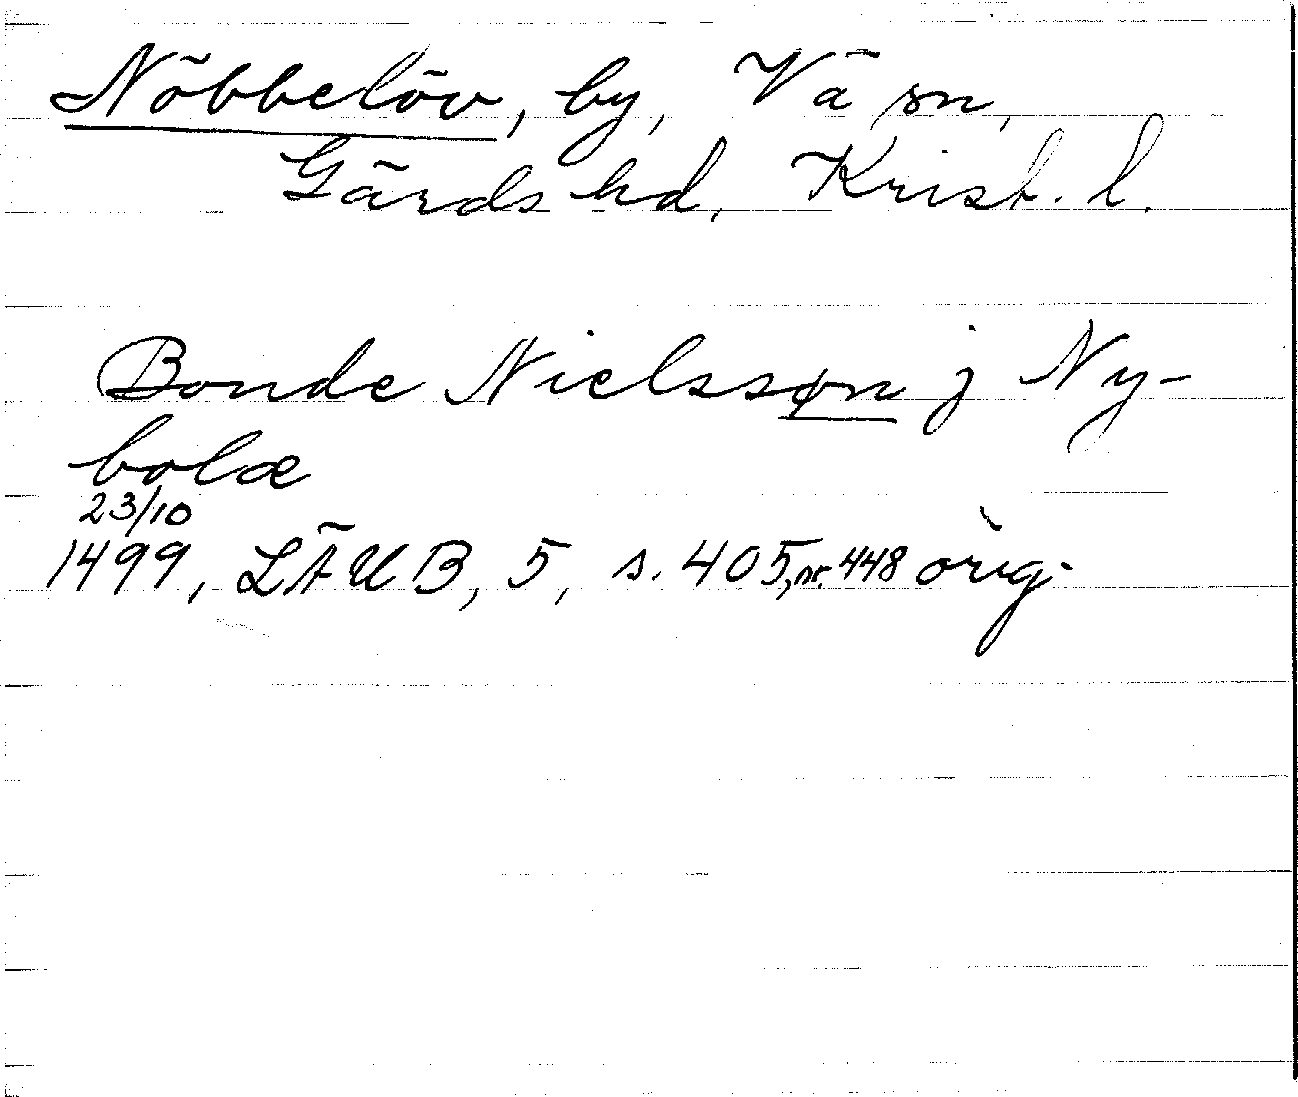 Nöbbelöv, by, Vä sn,
Gärds hd, Krist. l.
Bonde Nielssøn j Ny-
bolæ
23/10
1499, LÄUB, 5, s. 405, nr. 448 orig.